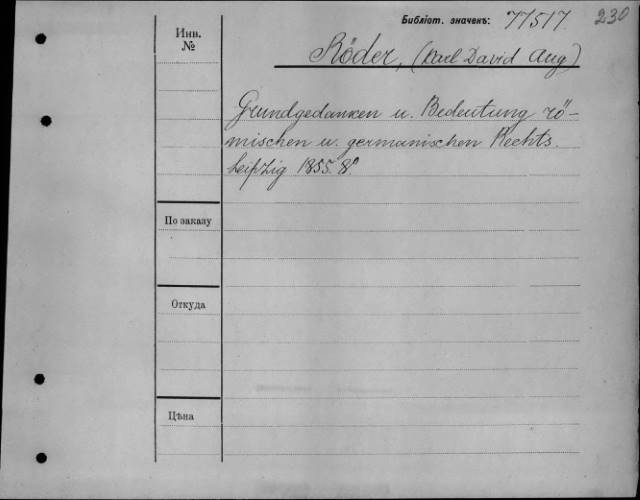 Библіот. значекъ: 77517. 230
Инв.
№
Röder, (Karl David Aug)
Grundgedanken u. Bedeutung rö-
mischen u. germanischen Rechts.
Leipzig 1855. 8º.
По заказу
Откуда
Цѣна